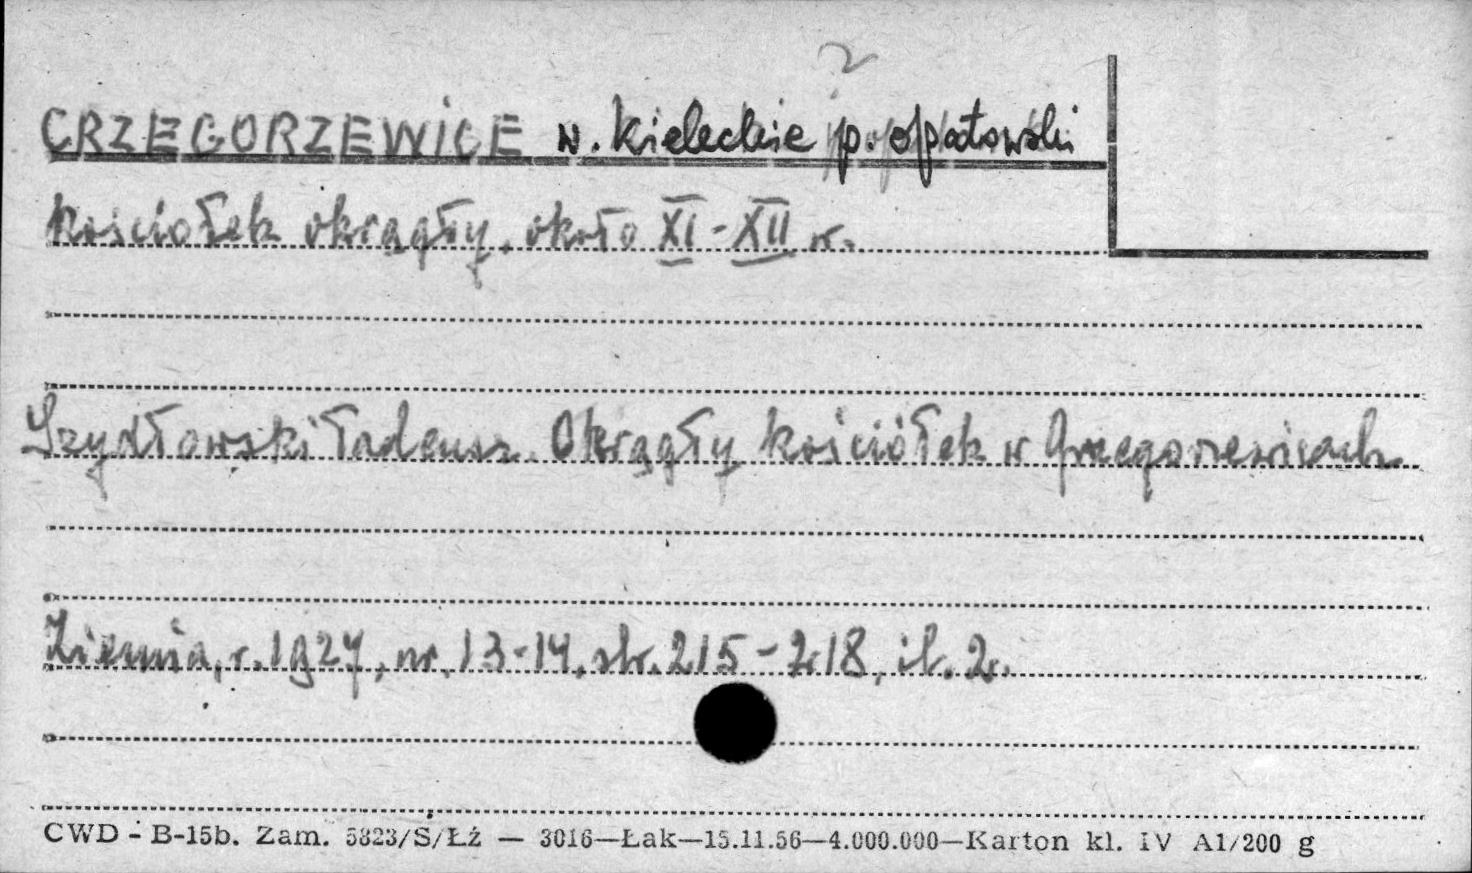 2
GRZEGORZEWICE w. Kieleckie p. opatowski
Kościołek okrągły, około XI - XII w.
Szydłowski Tadeusz. Okrągły kościółek w Grzegorzewicach
Ziemia, r. 1927, nr 13-14, str. 215 - 218, il. 2.
CWD - B-15b. Zam. 5323/S/Łż — 3016—Łak—15.11.56—4.000.000—Karton kl. IV A1/200 g